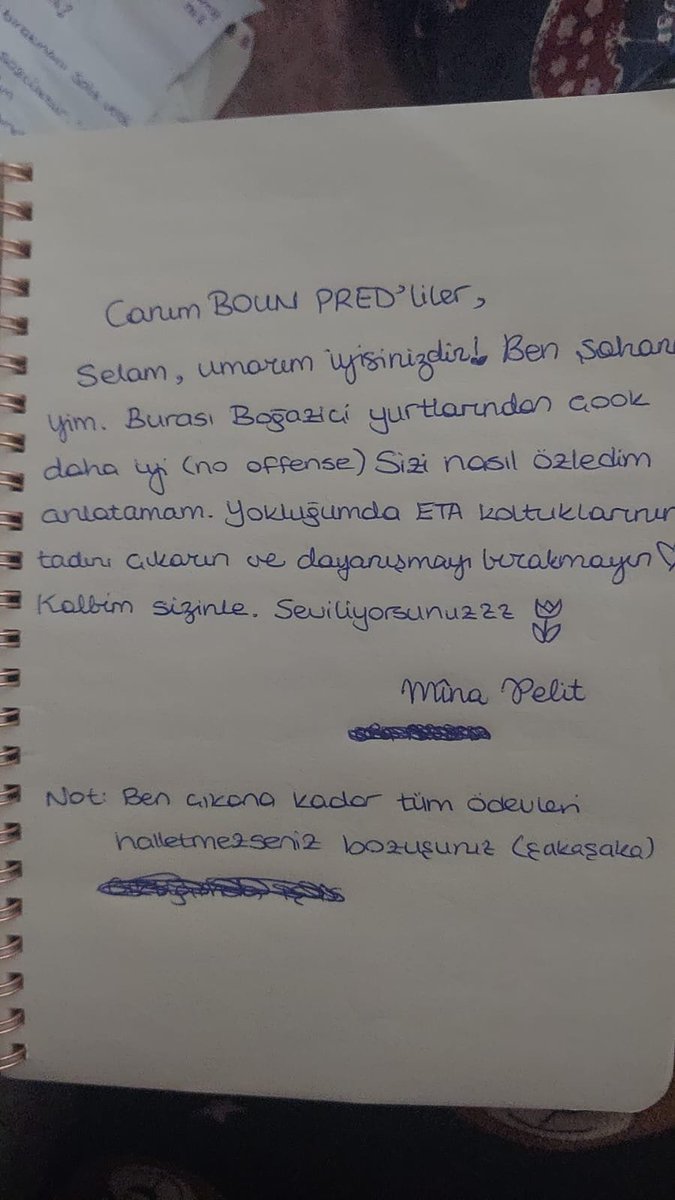 Canım BOUN PRED'liler,
Selam, umarım iyisinizdir! Ben şahane
yim. Burası Boğaziçi yurtlarından çook
daha iyi (no offense) Sizi nasıl özledim
anlatamam. Yokluğumda ETA koltuklarının
tadını çıkarın ve dayanışmayı bırakmayın ♡
Kalbim sizinle. Seviliyorsunuzzz
Mîna Pelit
Not: Ben çıkana kadar tüm ödevleri
halletmezseniz bozuşuruz (şakaşaka)